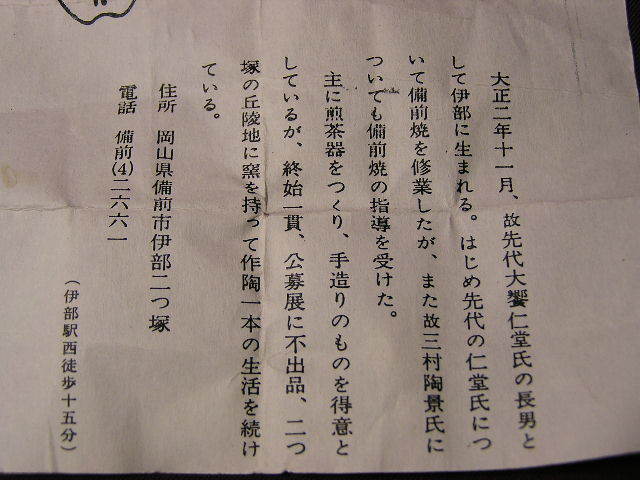 大正二年十一月、故先代大饗仁堂氏の長男と
して伊部に生まれる。はじめ先代の仁堂氏につ
いて備前焼を修業したが、また故三村陶景氏に
ついても備前焼の指導を受けた。
主に煎茶器をつくり、手造りのものを得意と
しているが、終始一貫、公募展に不出品、二つ
塚の丘陵地に窯を持って作陶一本の生活を続け
ている。
住所 岡山県備前市伊部二つ塚
電話 備前(4)二六六一
(伊部駅西徒歩十五分)